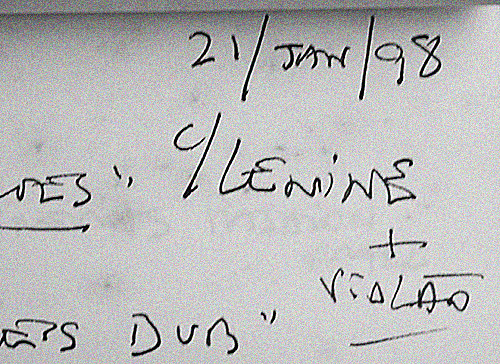 21/JAN/98
C/LENINE
+
VIOLÃO
DUB"